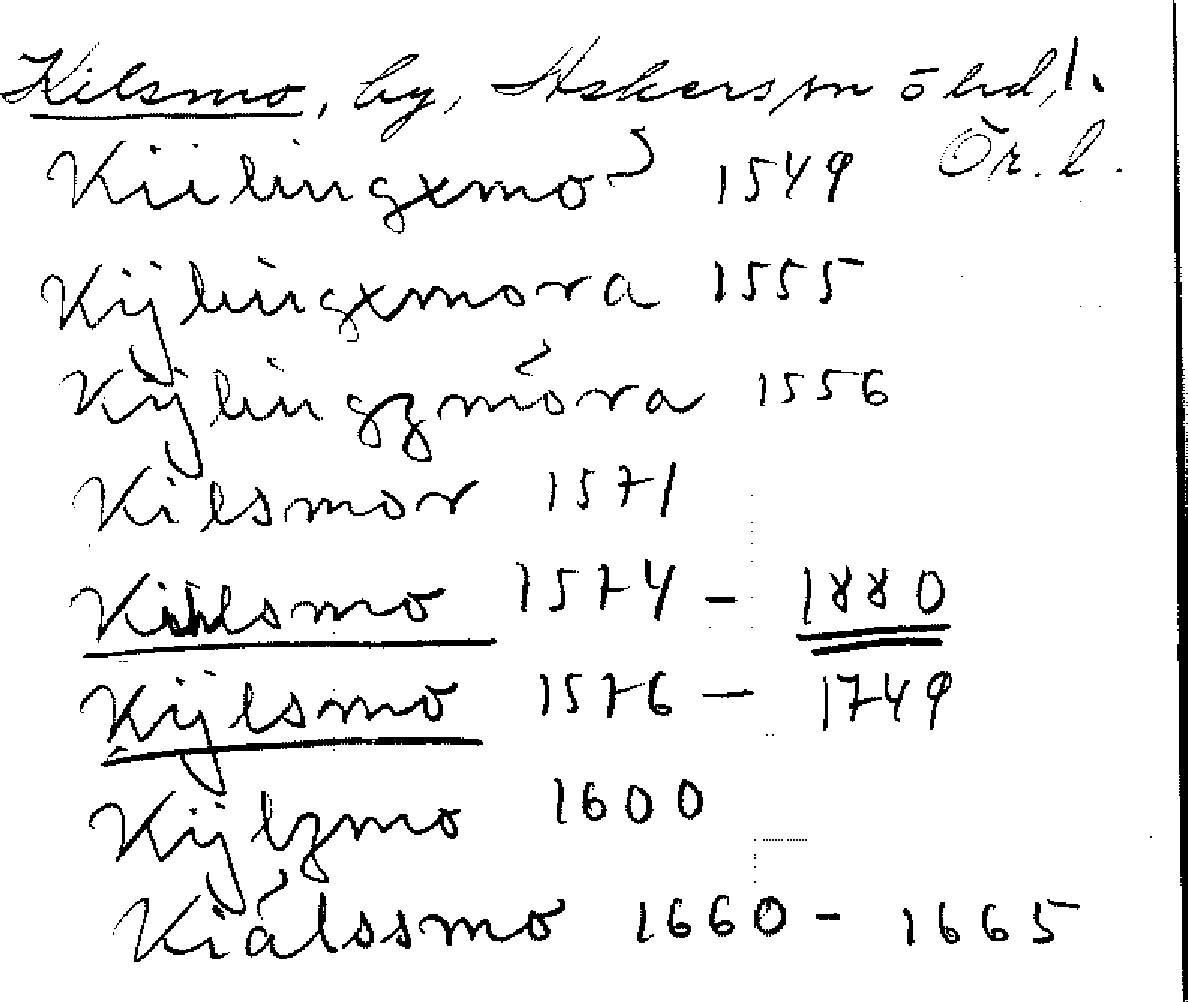 Kilsmo, by, Askers sn ö hd,
Ör. l.
Kiilingxmo 1549
Kijlingxmora 1555
Kijlingzmora 1556
Kilsmor 1571
Kihlsmo 1574 - 1880
Kijlsmo 1576 - 1749
Kijlzmo 1600
Kiálssmo 1660 - 1665